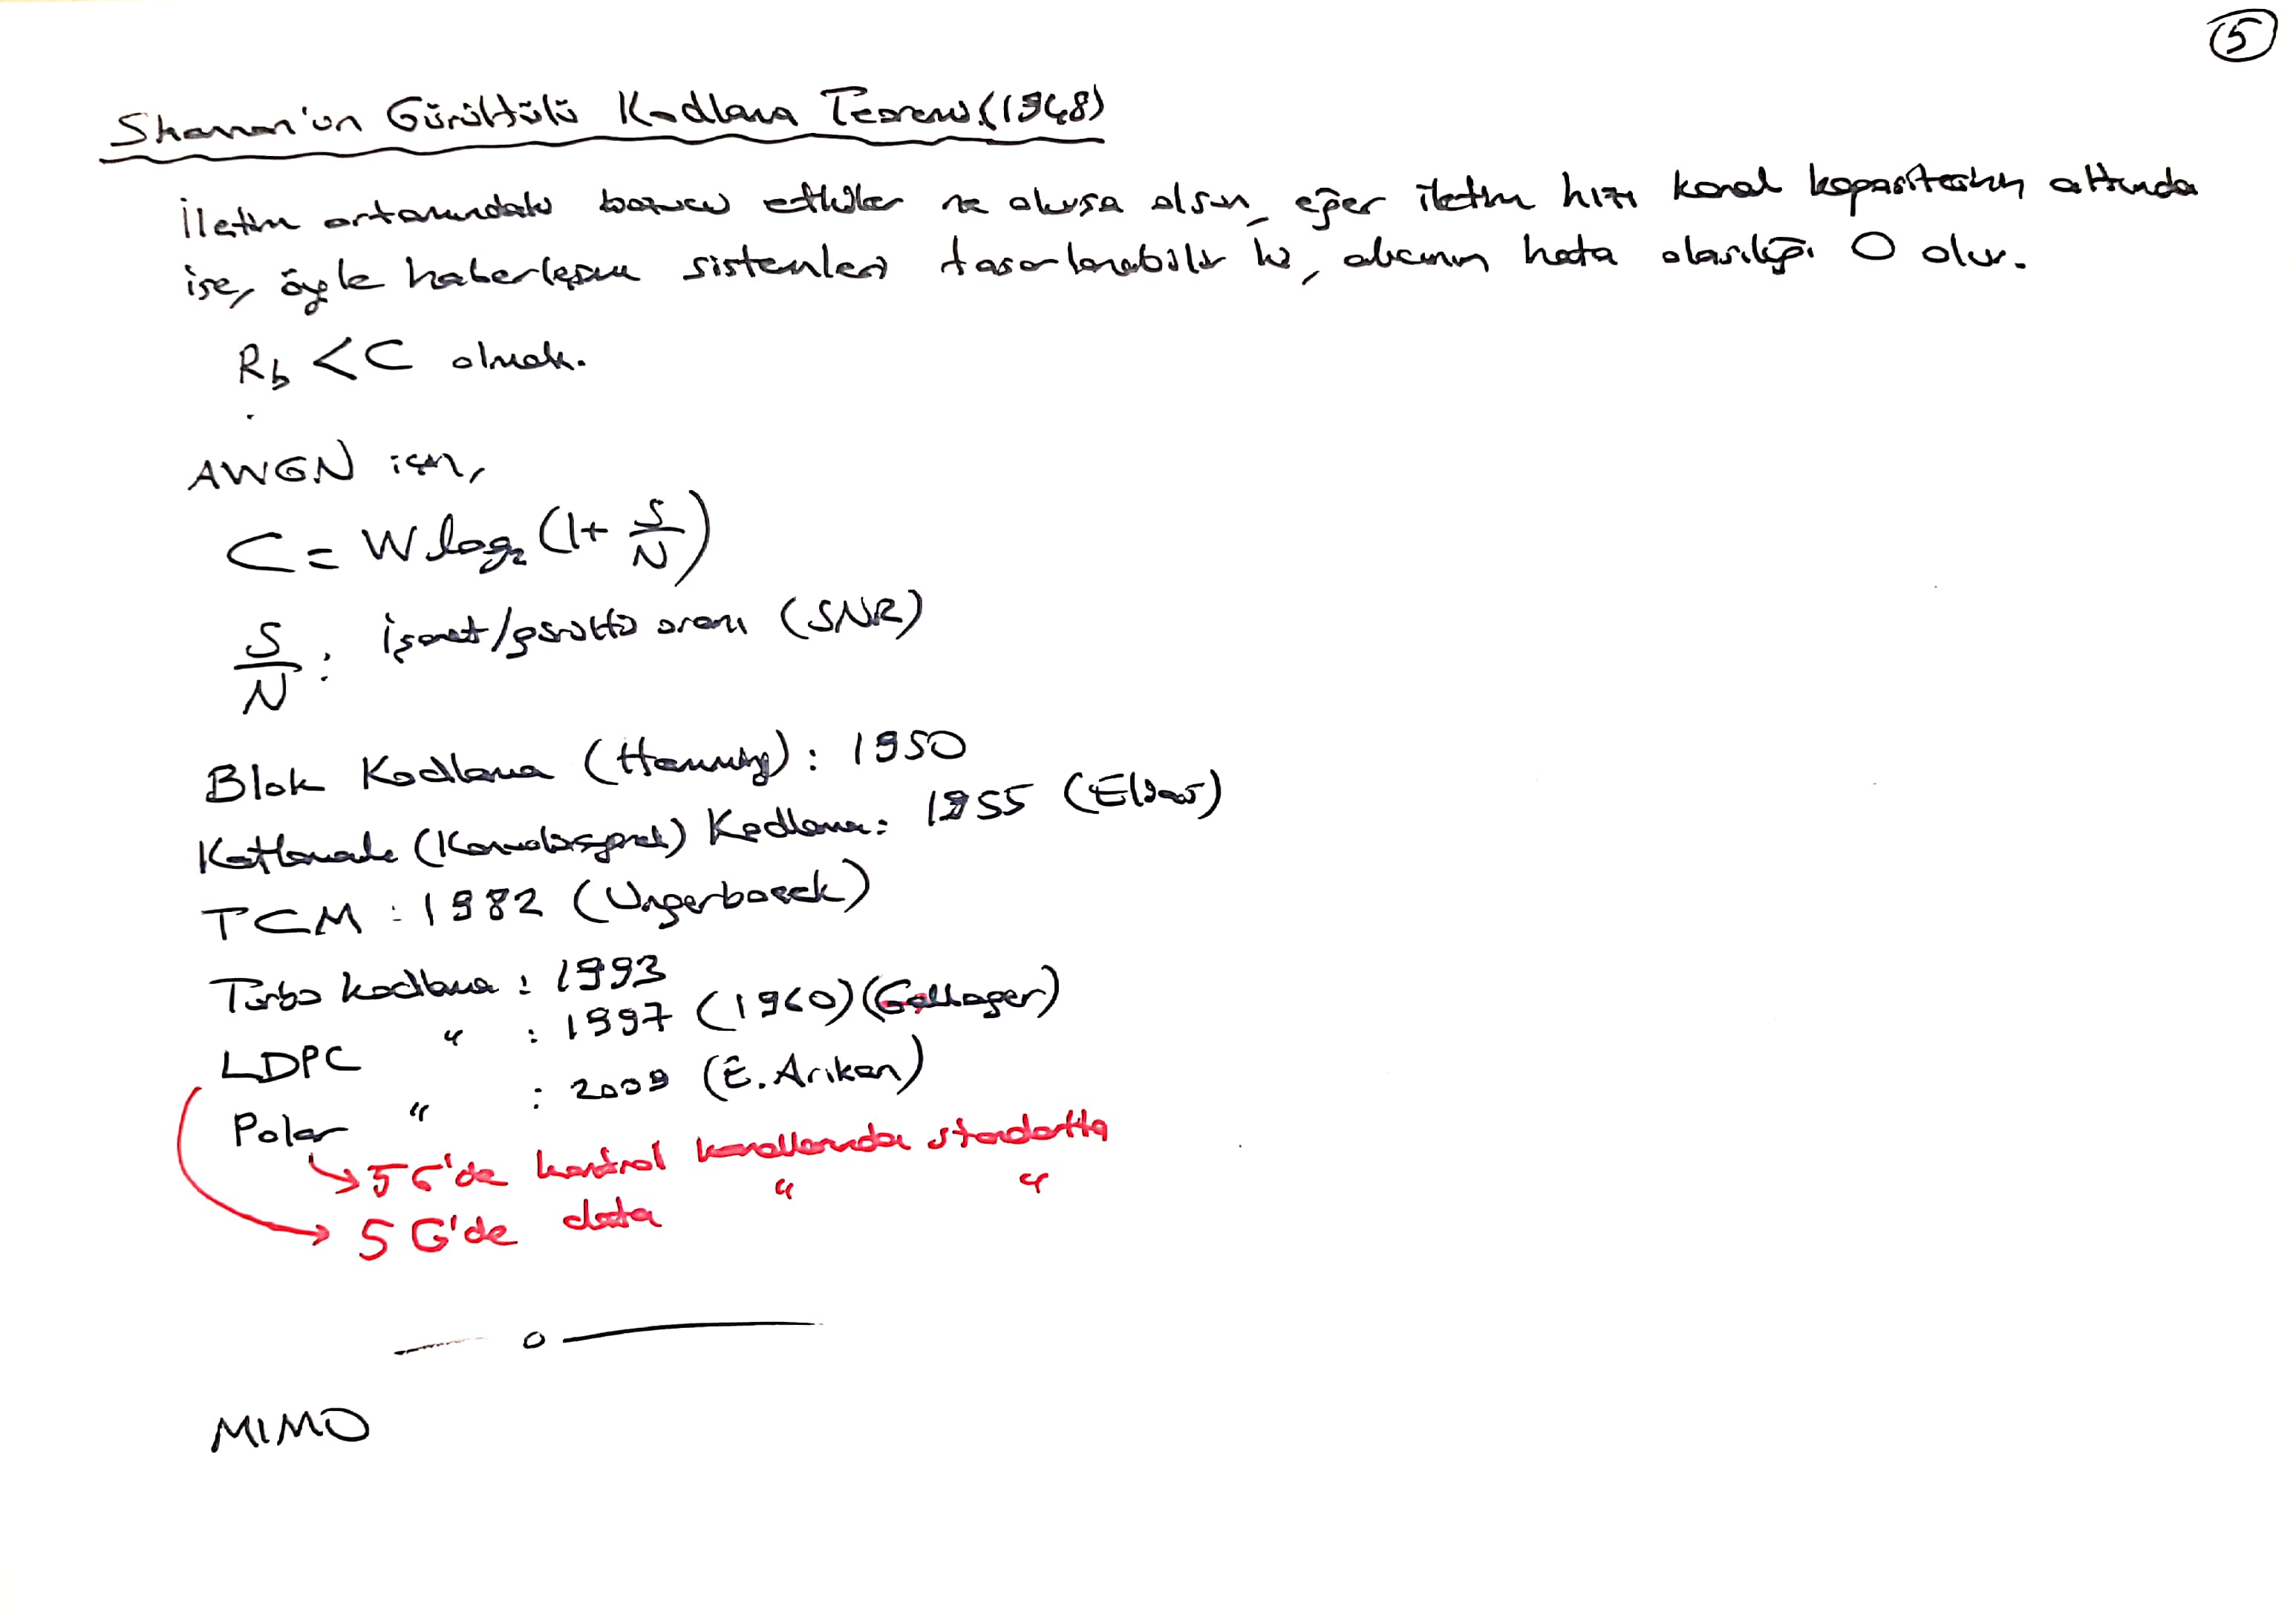 5
Shannon'un Gürültülü Kodlama Teoremi (1948)
İletim ortamındaki bozucu etkiler ne olursa olsun, eğer iletim hızı kanal kapasitesinin altında
ise, öyle haberleşme sistemleri tasarlanabilir ki, alıcının hata olasılığı 0 olur.
Rb < C olmak.
AWGN için,
C = W log₂ (1 + S/N)
S/N : İşaret/gürültü oranı (SNR)
Blok Kodlama (Hamming) : 1950
Katlamalı (Konvolüsyonel) Kodlama : 1955 (Elias)
TCM : 1982 (Ungerboeck)
Turbo kodlama : 1993
LDPC " : 1997 (1960) (Gallager)
Polar " : 2009 (E. Arikan)
5G'de kontrol kanallarında standartta
5G'de data " "
MIMO